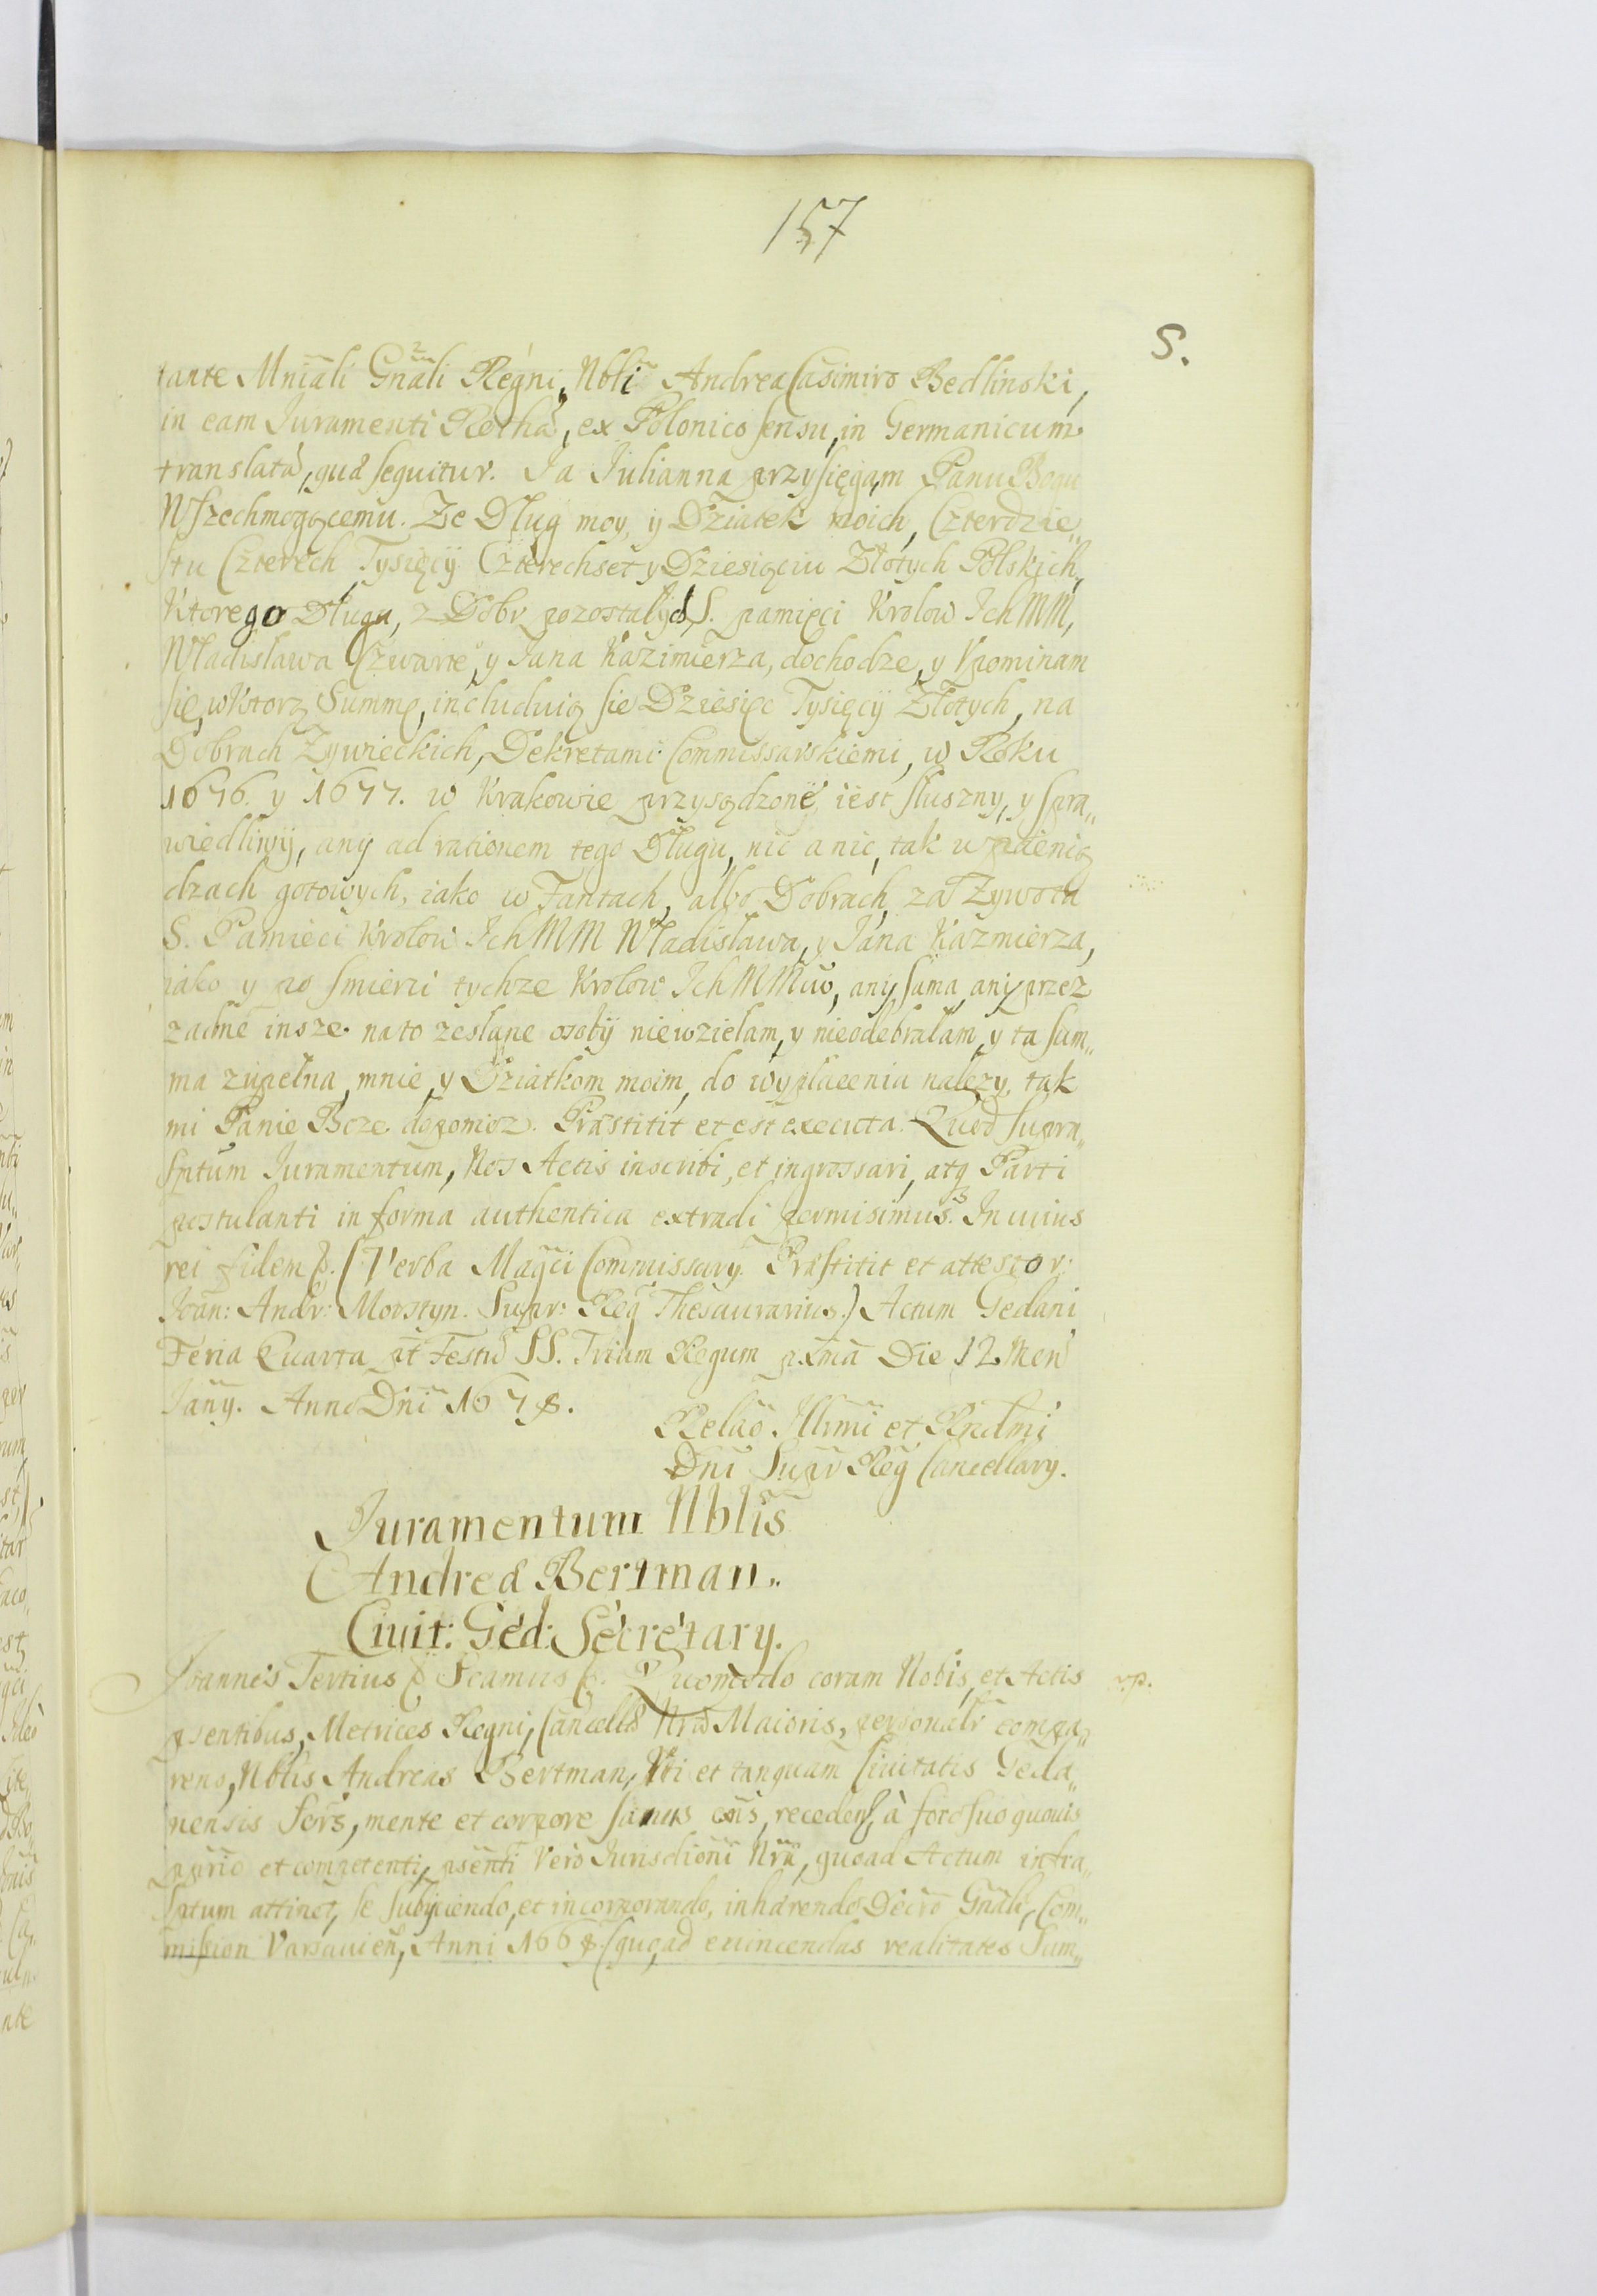 157
S.
tante Mniali Gnali Regni, Nbli Andrea Casimiro Bedlinski,
in eam Juramenti Rotha, ex Polonico sensu, in Germanicum
translata, qua sequitur. Ja Julianna przysięgam Panu Bogu
Wszechmogącemu. Ze Dług moy, y Dziatek moich, Czterdzie„
stu Czterech Tysięcÿ Czterechset y Dziesiąciu Złotych Polskich„
Ktorego Długu, z Dobr pozostałÿch S. pamięci Krolow Ich MM,
Władisława Czwarte°, y Jana Kazimierza, dochodze, y Vpominam
się, w Ktorą Summę, includuią sie Dziesięc Tysięcÿ Złotych, na
Dobrach Zywieckich, Dekretami Commissarskiemi, w Roku
1676. y 1677. w Krakowie przysądzone, iest słuszny, y spra„
wiedliwÿ, anÿ ad rationem tego Długu, nic a nic, tak w pienią
dzach gotowych, iako w Fantach, albo Dobrach, za Zywota
S. Pamieci Krolow Ich MM Władisława, y Jana Kazmierza,
iako y po smierci tychze Krolow Ich MMciw, anÿ sama, anÿ przez
zadne insze na to zesłane osobÿ niewziełam, y nieodebrałam, y ta sum„
ma zupełna, mnie, y Dziatkom moim, do wypłacenia nalezy, tak
mi Panie Boze dopomoz. Præstitit et est executa. Quod supra„
sptum Juramentum, Nos Actis inscribi, et ingrossari, atq Parti
postulanti in forma authentica extradi permisimus. In cuius
rei fidem &. (Verba Magci Commissarÿ. Præstitit et attestor:
Joan: Andr: Morstyn. Supr: Reg Thesaurarius.) Actum Gedani
Feria Quarta pt Festu SS. Trium Regum pxma Die 12 Men
Janÿ. Anno Dni 1678.
Relao Illrmi et Rndmi
Dni Supr Reg Cancellarÿ.
Juramentum Nblis
Andreæ Bertman„
Ciuit: Ged: Secretarÿ.
Joannes Tertius & Scamus &. Quomodo coram Nobis, et Actis
psentibus, Metrices Regni, Cancellæ Nræ Maioris, personalr compa„
rens, Nblis Andreas Bertman, Vti et tanquam Ciuitatis Geda„
nensis Scrs, mente et corpore sanus ens, recedens, à foro suo quouis
pprio et competenti, psenti vero Jurisdioni Nræ, quoad Actum infra„
sptum attinet, se subÿciendo, et incorporando, inhærendo Decro Gnali, Com„
mission Varsauien, Anni 1668. (quoad euincendas realitates Sum„